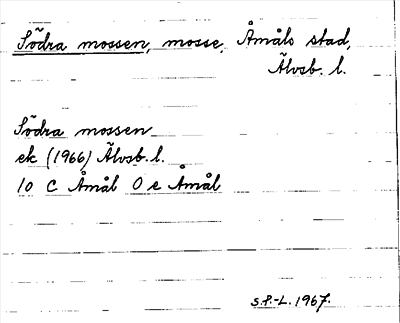 Södra mossen, mosse, Åmåls stad,
Älvsb. l.
Södra mossen
ek (1966) Älvsb. l.
10 C Åmål 0 e Åmål
S.P.-L. 1967.